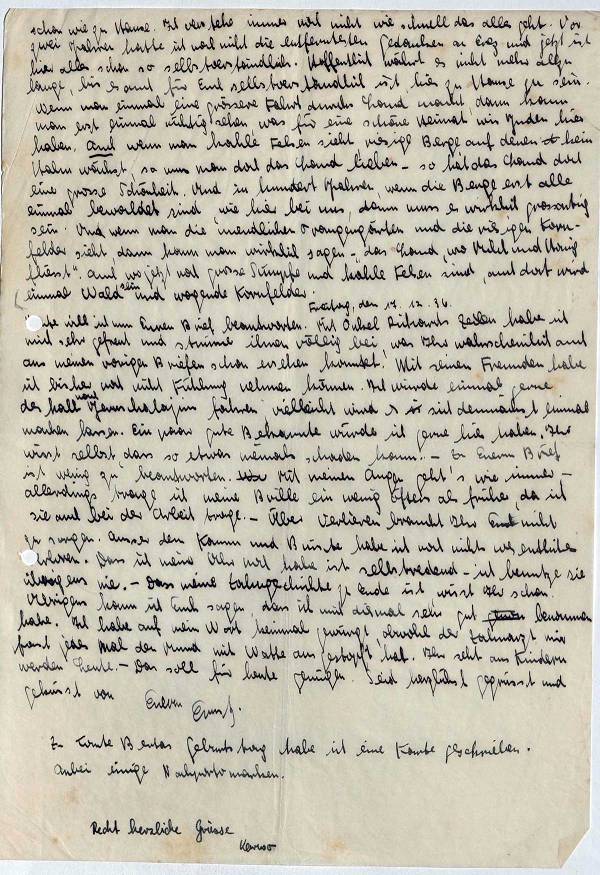 schon wie zu Hause. Ich verstehe immer noch nicht wie schnell das alles geht. Vor
zwei Jahren hatte ich noch nicht die entferntesten Gedanken an Erez und jetzt ist
hier alles schon so selbstverständlich. Hoffentlich währt es nicht mehr allzu
lange, bis es auch für Euch selbstverständlich ist, hier zu Hause zu sein.
Wenn man einmal eine grössere Fahrt durchs Land macht, dann kann
man erst einmal richtig sehen, was für eine schöne Heimat wir Juden hier
haben. Auch wenn man kahle Felsen sieht riesige Berge auf denen kein
Halm wächst, so muss man doch das Land lieben - so hat das Land doch
eine grosse Schönheit. Und in hundert Jahren, wenn die Berge erst alle
einmal bewaldet sind wie hier bei uns, dann muss es wirklich grossartig
sein. Und wenn man die unendlichen Orangengärten und die riesigen Korn-
felder sieht dann kann man wirklich sagen - "das Land, wo Milch und Honig
fliesst". Auch wo jetzt noch grosse Sümpfe und kahle Felsen sind, auch dort wird
einmal Wald sein und wogende Kornfelder.
Freitag, den 17. 12. 36.
Heute will ich nun Euren Brief beantworten. Mit Onkel Richards Zeilen habe ich
mich sehr gefreut und stimme ihnen völlig bei, was Ihr wahrscheinlich auch
aus meinen vorigen Briefen schon ersehen konntet. Mit seinen Freunden habe
ich bisher noch nicht Fühlung nehmen können. Ich würde einmal gerne
deshalb nach Jeruschalajim fahren vielleicht wird es sich demnächst einmal
machen lassen. Ein paar gute Bekannte würde ich gerne hier haben. Ihr
wisst selbst, dass so etwas niemals schaden kann. - Zu Euerm Brief
ist wenig zu beantworten. Mit meinen Augen geht's wie immer -
allerdings trage ich meine Brille ein wenig öfters als früher, da ich
sie auch bei der Arbeit trage. - Über Verlieren braucht Ihr Euch nicht
zu sorgen. Ausser den Kamm und Bürste habe ich noch nichts wesentliches
verloren. Dass ich meine Uhr noch habe ist selbstredend - ich benutze sie
übrigens nie. - Dass meine Zahngeschichte zu Ende ist wisst Ihr schon.
Übrigens kann ich Euch sagen dass ich mich diesmal sehr gut benommen
habe. Ich habe auf mein Wort keinmal gewürgt obwohl der Zahnarzt mir
fast jedes Mal den Mund mit Watte ausgestopft hat. Ihr seht aus Kindern
werden Leute. - Das soll für heute genügen. Seid herzlichst gegrüsst und
geküsst von
Euerm
Ernst.
Zu Tante Bertas Geburtstag habe ich eine Karte geschrieben.
Anbei einige
Recht herzliche Grüsse